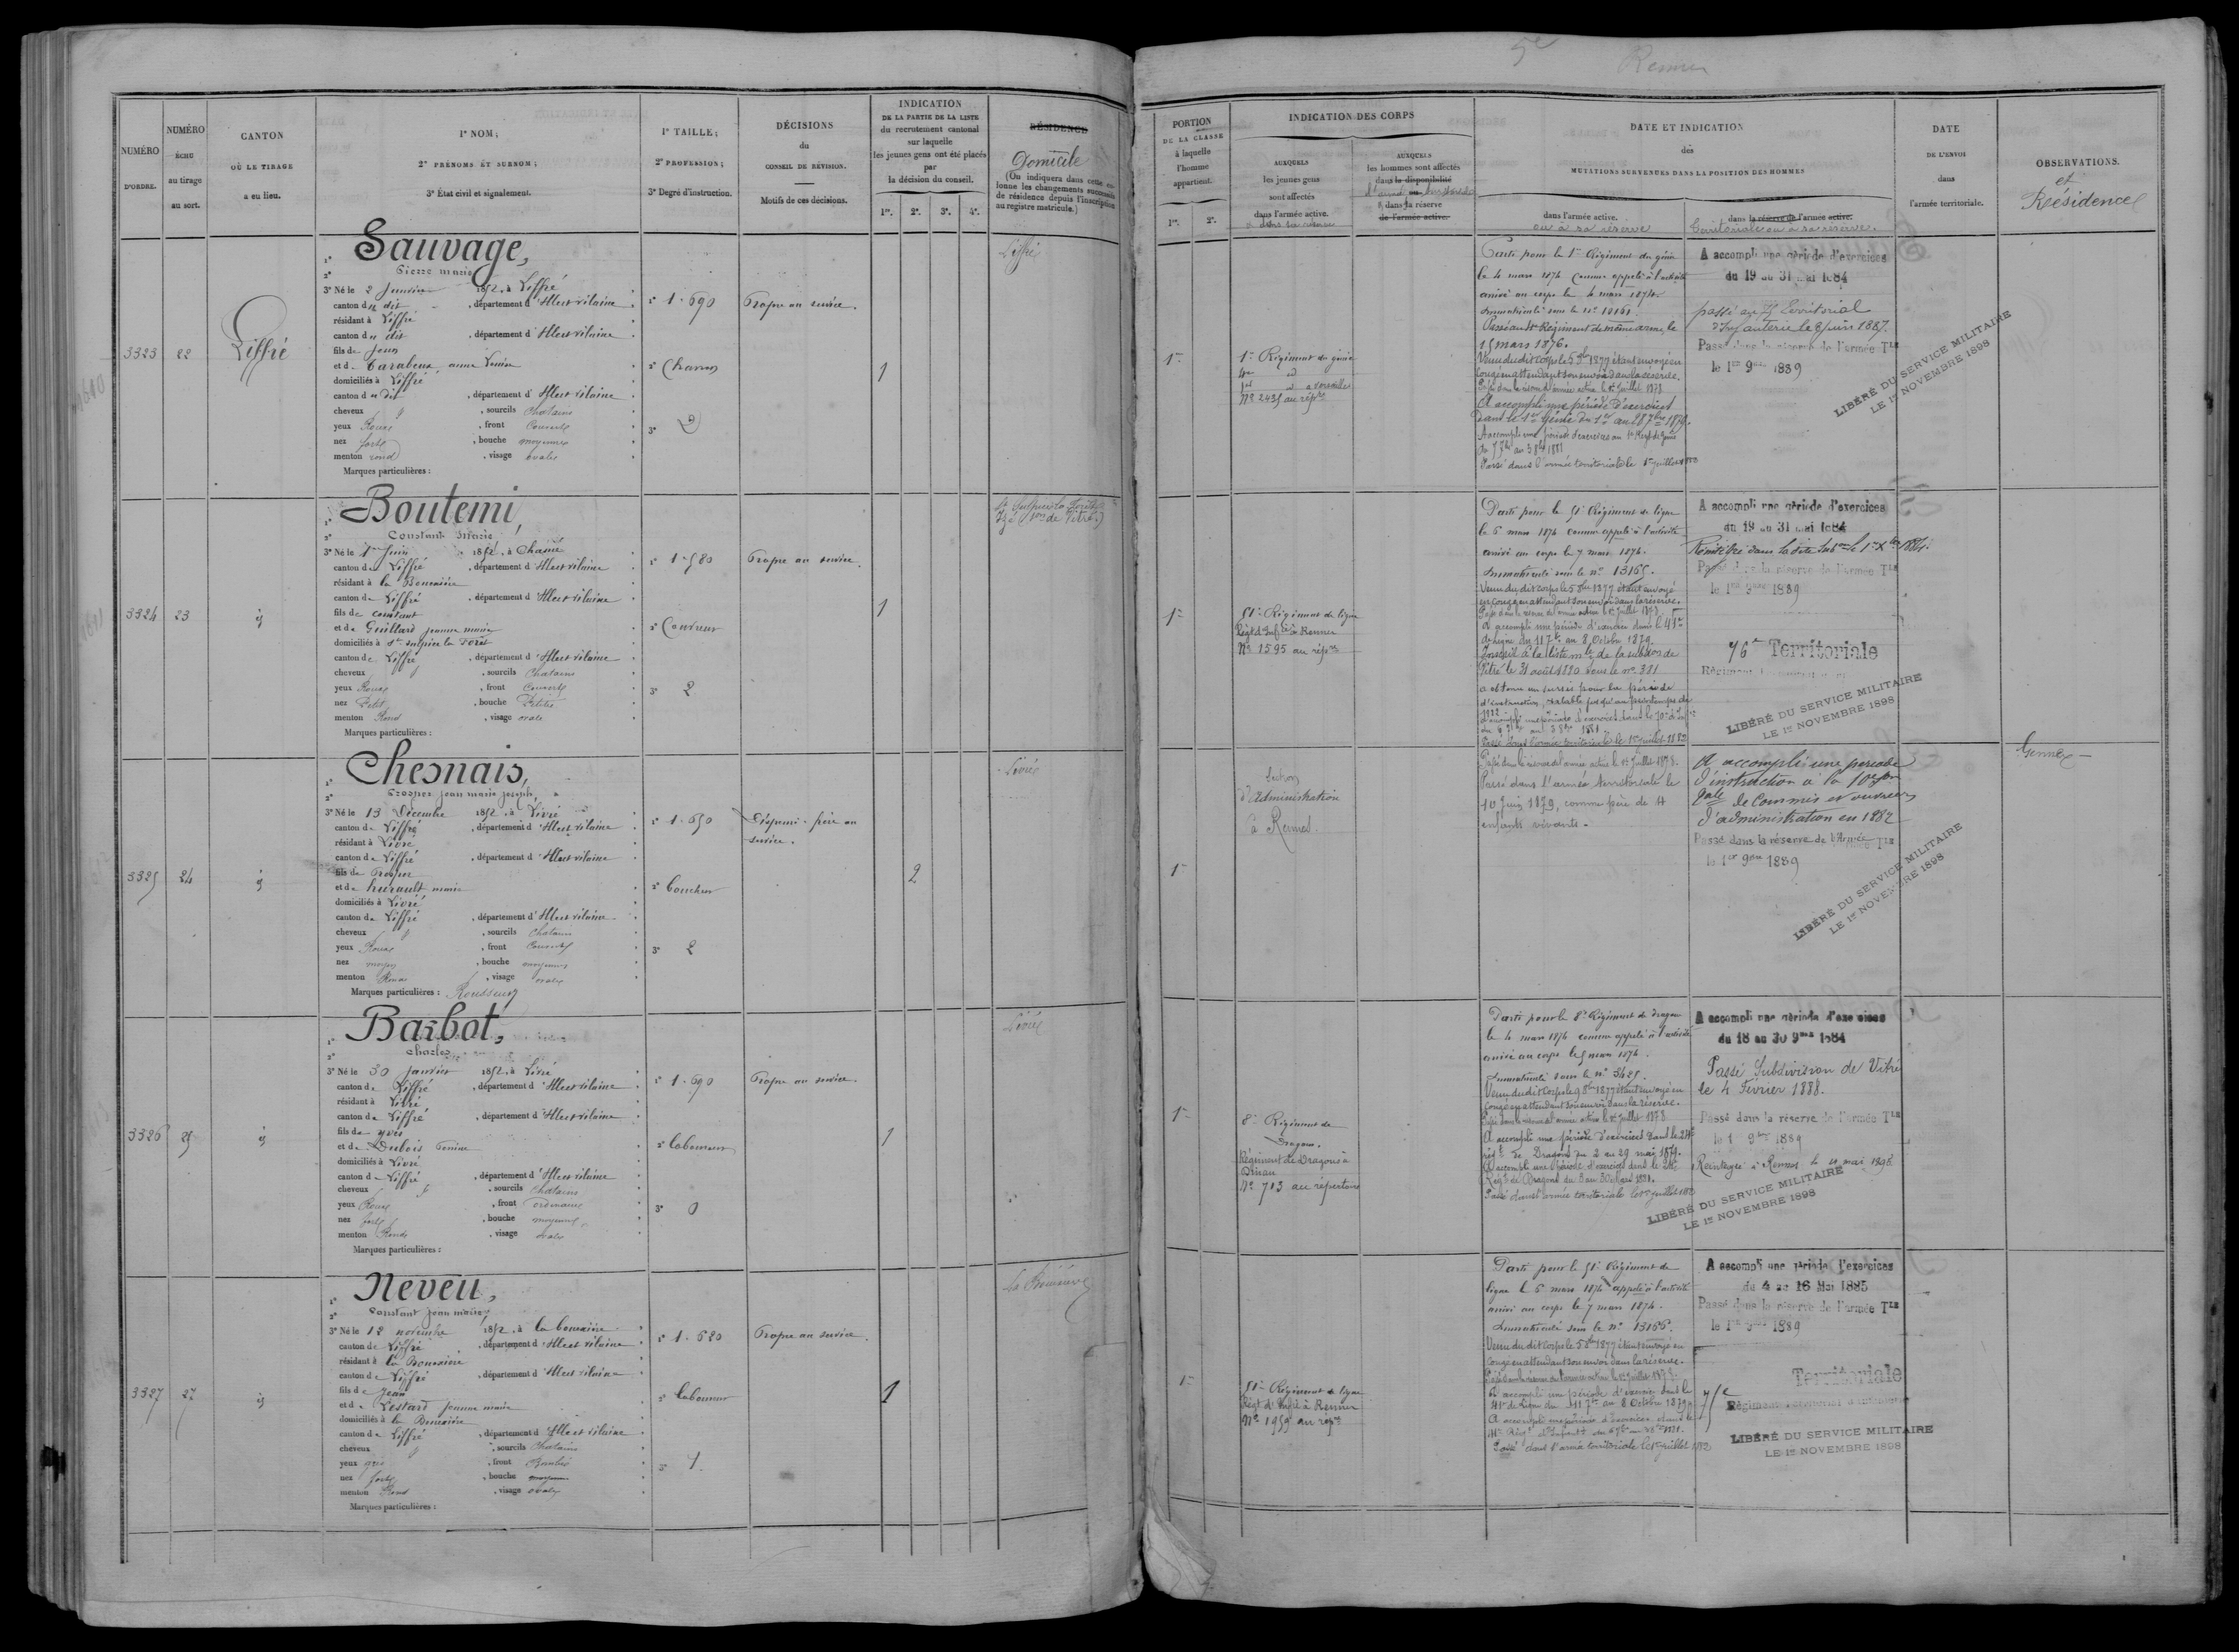 5e Rennes
NUMÉRO D'ORDRE.
NUMÉRO ÉCHU au tirage au sort.
CANTON OÙ LE TIRAGE a eu lieu.
1° NOM;
2° PRÉNOMS ET SURNOM;
3° État civil et signalement.
1° TAILLE;
2° PROFESSION;
3° Degré d'instruction.
DÉCISIONS du CONSEIL DE RÉVISION.
Motifs de ces décisions.
INDICATION DE LA PARTIE DE LA LISTE
du recrutement cantonal
sur laquelle
les jeunes gens ont été placés
par
la décision du conseil.
1re. 2e. 3e. 4e.
RÉSIDENCE
Domicile
(On indiquera dans cette colonne les changements successifs
de résidence depuis l'inscription
au registre matricule.)
PORTION DE LA CLASSE
à laquelle
l'homme
appartient.
1re. 2e.
INDICATION DES CORPS
AUXQUELS
les jeunes gens
sont affectés
dans l'armée active.
AUXQUELS
les hommes sont affectés
dans la disponibilité
dans la réserve
de l'armée active.
DATE ET INDICATION
des
MUTATIONS SURVENUES DANS LA POSITION DES HOMMES
dans l'armée active.
ou à sa réserve
dans la réserve de l'armée active.
Territoriale ou à sa réserve.
DATE
DE L'ENVOI
dans
l'armée territoriale.
OBSERVATIONS.
et
Résidence
3323 22 Liffré
1° Sauvage,
2° Pierre marie
3° Né le 2 Janvier 1852, à Liffré
canton du dit, département d'Ille et vilaine
résidant à Liffré
canton du dit, département d'Ille et vilaine
fils de Jean
et de Tarabeux anne
domiciliés à Liffré
canton du dit, département d'Ille et vilaine
cheveux, sourcils Chatains
yeux Roux, front Couvert
nez fort, bouche moyenne
menton rond, visage ovale
Marques particulières :
1° 1.690
2° Charron
3° 2
Propre au service.
1
Liffré
1re
1er Régiment du génie
4e id
1er id à Versailles
No 2435 au répre
Parti pour le 1er Régiment du génie
le 4 mars 1874 comme appelé à l'activité
arrivé au corps le 4 mars 1874
Immatriculé sous le no 10161.
Passé au 4e Régiment de même arme, le
15 mars 1876.
Venu du dit corps le 5 9bre 1877 étant envoyé en
congé en attendant son envoi dans la réserve.
Passé dans la réserve de l'armée active le 1er Juillet 1878.
A accompli une période d'exercices
dans le 1er Génie du 1er au 28 7bre 1879.
A accompli une période d'exercices au 1er Régt du Génie
du 5 7bre au 3 8bre 1881
Passé dans l'armée territoriale le 1er juillet 1882
A accompli une période d'exercices
du 19 au 31 mai 1884
passé au 75 Territorial
d'Infanterie le 8 juin 1887.
Passé dans la réserve de l'armée Tle
le 1er 9bre 1889
LIBÉRÉ DU SERVICE MILITAIRE
LE 1er NOVEMBRE 1898
3324 23 id
1° Boutemi,
2° Constant Marie
3° Né le 1er Juin 1852, à Chasné
canton de Liffré, département d'Ille et vilaine
résidant à la Bouexière
canton de Liffré, département d'Ille et vilaine
fils de constant
et de Guillard jeanne marie
domiciliés à St Sulpice la Forêt
canton de Liffré, département d'Ille et vilaine
cheveux, sourcils Chatains
yeux Roux, front Couvert
nez Petit, bouche Petite
menton Rond, visage ovale
Marques particulières :
1° 1.580
2° Couvreur
3° 2
Propre au service.
1
St Sulpice la Forêt
Izé (son de Vitré)
1re
51e Régiment de ligne
Régt d'Infie à Rennes
No 1595 au répre
Parti pour le 51e Régiment de ligne
le 6 mars 1874 comme appelé à l'activité
arrivé au corps le 7 mars 1874.
Immatriculé sous le no 13165.
Venu du dit corps le 5 9bre 1877 étant envoyé
en congé en attendant son envoi dans la réserve.
Passé dans la réserve de l'armée active le 1er Juillet 1878.
A accompli une période d'exercices dans le 41e
de ligne du 11 7bre au 8 Octobre 1879.
Inscrit à la liste mle de la subdon de
Vitré le 31 août 1880 sous le no 381
a obtenu un sursis pour la période
d'instruction, valable jusqu'au printemps de
1882
Passé dans l'armée territoriale le 1er juillet 1882
A accompli une période d'exercices
du 19 au 31 mai 1884
Réintégré dans la dite subon le 1er Xbre 1884.
Passé dans la réserve de l'armée Tle
le 1er 9bre 1889
76e Territoriale
LIBÉRÉ DU SERVICE MILITAIRE
LE 1er NOVEMBRE 1898
3325 24 id
1° Chesnais,
2° Prosper jean marie joseph
3° Né le 13 Décembre 1852, à Livré
canton de Liffré, département d'Ille et vilaine
résidant à Livré
canton de Liffré, département d'Ille et vilaine
fils de Prosper
et de hurault marie
domiciliés à Livré
canton de Liffré, département d'Ille et vilaine
cheveux, sourcils Chatains
yeux Roux, front Couvert
nez moyen, bouche moyenne
menton Rond, visage ovale
Marques particulières : Rousseurs
1° 1.650
2° Boucher
3° 2
Dispensé. frère au
service.
2
Livré
1re
Section
d'Administration
à Rennes.
Passé dans la réserve de l'armée active le 1er Juillet 1878.
Passé dans l'armée territoriale le
10 Juin 1879, comme père de 4
enfants vivants.
A accompli une période
d'instruction à la 10e son
pale de Commis et ouvriers
d'administration en 1882
Passé dans la réserve de l'Armée Tle
le 1er 9bre 1889
LIBÉRÉ DU SERVICE MILITAIRE
LE 1er NOVEMBRE 1898
Gennes
3326 25 id
1° Barbot,
2° Charles
3° Né le 30 Janvier 1852, à Livré
canton de Liffré, département d'Ille et vilaine
résidant à Livré
canton de Liffré, département d'Ille et vilaine
fils de yves
et de Dubois Perrine
domiciliés à Livré
canton de Liffré, département d'Ille et vilaine
cheveux, sourcils Chatains
yeux Roux, front ordinaire
nez fort, bouche moyenne
menton Rond, visage ovale
Marques particulières :
1° 1.690
2° Laboureur
3° 0
Propre au service.
1
Livré
1re
8e Régiment de
Dragons.
Régiment de Dragons à
Dinan
No 713 au répertoire
Parti pour le 8e Régiment de Dragon
le 4 mars 1874 comme appelé à l'activité
arrivé au corps le 5 mars 1874.
Immatriculé sous le no 3425.
Venu du dit corps le 9 8bre 1877 étant envoyé en
congé en attendant son envoi dans la réserve.
Passé dans la réserve de l'armée active le 1er Juillet 1878
A accompli une période d'exercices dans le 24e
régt de Dragons du 2 au 29 mai 1879.
A accompli une période d'exercices dans le 24e
Régt de Dragons du 3 au 30 1881.
Passé dans l'armée territoriale le 1er juillet 1882
A accompli une période d'exercices
du 18 au 30 9bre 1884
Passé Subdivision de Vitré
le 4 Février 1888.
Passé dans la réserve de l'armée Tle
le 1er 9bre 1889
Réintégré à Rennes le 4 mai 1898
LIBÉRÉ DU SERVICE MILITAIRE
LE 1er NOVEMBRE 1898
3327 27 id
1° Neveu,
2° Constant Jean marie
3° Né le 12 novembre 1852, à la bouexière
canton de Liffré, département d'Ille et vilaine
résidant à la Bouexière
canton de Liffré, département d'Ille et vilaine
fils de Jean
et de Lestard Jeanne marie
domiciliés à la Bouexière
canton de Liffré, département d'Ille et vilaine
cheveux, sourcils Chatains
yeux gris, front Bombé
nez fort, bouche moyenne
menton Rond, visage ovale
Marques particulières :
1° 1.620
2° Laboureur
3° 1.
Propre au service.
1
La Bouexière
1re
51e Régiment de ligne
Régt d'Infie à Rennes
No 1959 au répre
Parti pour le 51e Régiment de
ligne le 6 mars 1874 appelé à l'activité
arrivé au corps le 7 mars 1874.
Immatriculé sous le no 13166.
Venu du dit corps le 5 9bre 1877 étant envoyé en
congé en attendant son envoi dans la réserve.
Passé dans la réserve de l'armée active le 1er Juillet 1878.
A accompli une période d'exercices dans le
41e de Ligne du 11 7bre au 8 Octobre 1879
A accompli une période d'exercices dans le
Passé dans l'armée territoriale le 1er juillet 1882
A accompli une période d'exercices
du 4 au 16 Mai 1885
Passé dans la réserve de l'armée Tle
le 1er 9bre 1889
75e Territoriale
LIBÉRÉ DU SERVICE MILITAIRE
LE 1er NOVEMBRE 1898